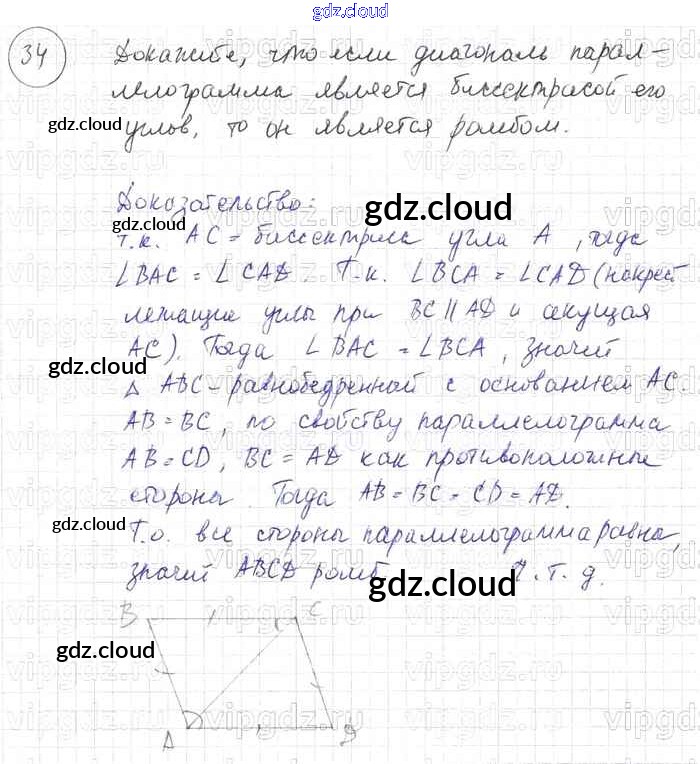 gdz.cloud
34 Докажите, что если диагональ парал-
лелограмма является биссектрисой его
gdz.cloud
углов, то он является ромбом.
Доказательство:
gdz.cloud
т.к. AC - биссектриса угла A, тогда
∠BAC = ∠CAD. Т.к. ∠BCA = ∠CAD (накрест
лежащие углы при BC || AD и секущая
AC). Тогда ∠BAC = ∠BCA, значит
gdz.cloud
Δ ABC - равнобедренной с основанием AC.
AB = BC, по свойству параллелограмма
AB = CD, BC = AD как противоположные
стороны. Тогда AB = BC = CD = AD.
gdz.cloud
Т.о. все стороны параллелограмма равны,
значит ABCD ромб Ч.т.д.
gdz.cloud
B C
gdz.cloud
A D